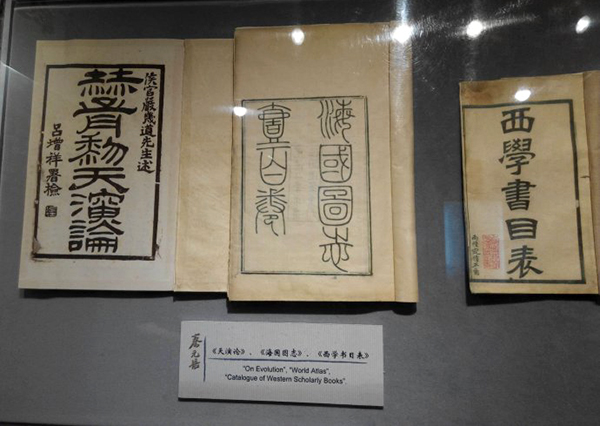 侯官嚴幾道先生述
赫胥黎天演論
呂增祥署檢
海國圖志
壹百卷
西學書目表
《天演论》、《海国图志》、《西学书目表》
"On Evolution", "World Atlas",
"Catalogue of Western Scholarly Books"